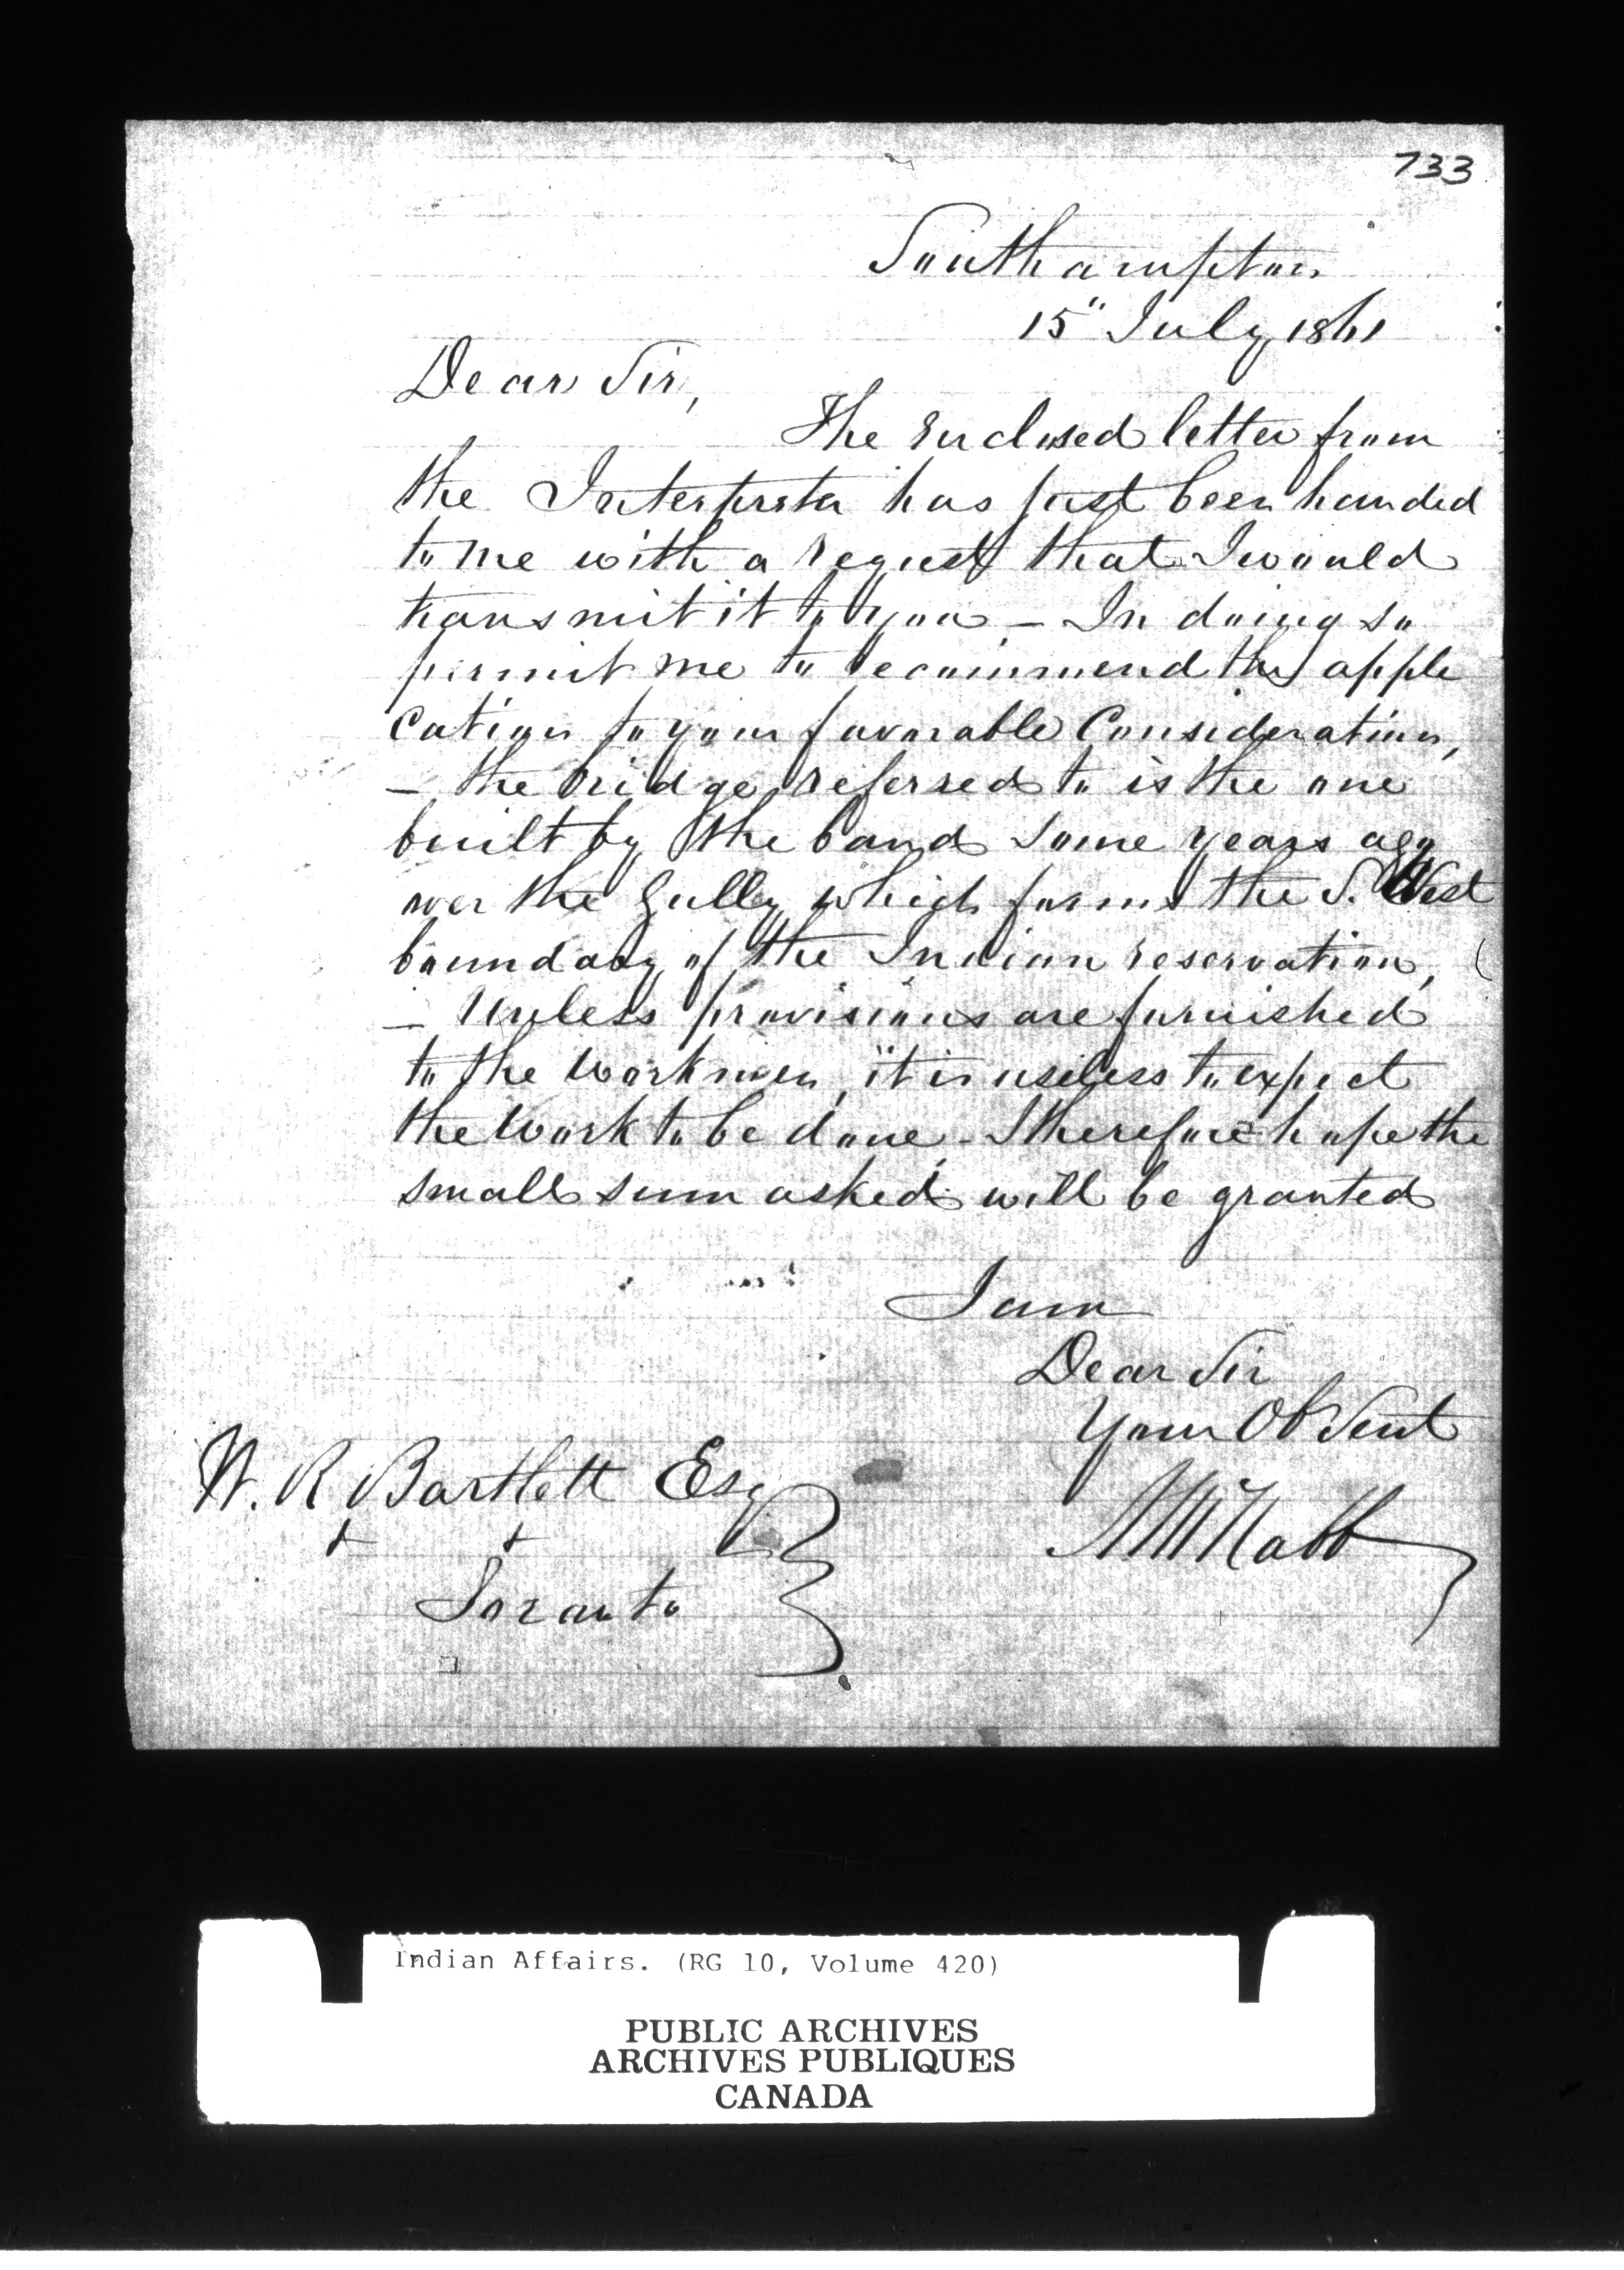 733
Southampton
15" July 1861
Dear Sir,
The enclosed letter from
the Interpreter has just been handed
to me with a request that I would
transmit it to you – In doing so
permit me to recommend the appli
cation to your favorable Consideration,
– the bridge referred to is the one
built by the band some years ago
over the Gully which forms the S. West
boundary of the Indian reservation,
– Unless provisions are furnished
to the workmen, it is useless to expect
the work to be done – I therefore hope the
small sum asked will be granted
I am
Dear Sir
Your Ob Servt
A McNabb
W. R Bartlett Esq
Toronto
Indian Affairs. (RG 10, Volume 420)
PUBLIC ARCHIVES
ARCHIVES PUBLIQUES
CANADA